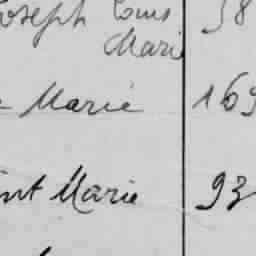 Joseph Louis 58
Marie
Marie 169
int Marie 93